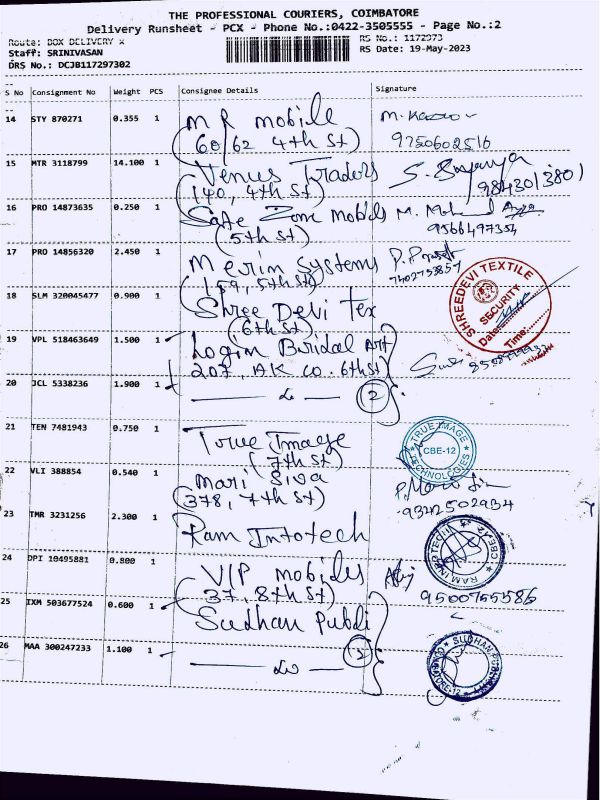 THE PROFESSIONAL COURIERS, COIMBATORE
Delivery Runsheet - PCX - Phone No.:0422-3505555 - Page No.:2
Route: BOX DELIVERY X
RS No.: 1172973
Staff: SRINIVASAN
RS Date: 19-May-2023
DRS No.: DCJB117297302
S No Consignment No Weight PCS Consignee Details Signature
14 STY 870271 0.355 1 M R mobile
(60/62 4th St) 9750602516
15 MTR 3118799 14.100 1 Venus Traders
(140, 4th St) 9843013801
16 PRO 14873635 0.250 1 Safe Zone Mobiles
(5th St) 9566497354
17 PRO 14856320 2.450 1 Merim Systems
(159, 5th St)
18 SLM 320045477 0.900 1 Shree Devi Tex
(6th St)
SHREEDEVI TEXTILE
SECURITY
Date:
Time:
19 VPL 518463649 1.500 1 Login Bridal Art
207, AK Co. 6th St
20 JCL 5338236 1.900 1 2
21 TEN 7481943 0.750 1 True Image
(7th St)
TRUE IMAGE
TECHNOLOGIES
CBE-12
22 VLI 388854 0.540 1 Mari Siva
(378, 7th St) 9342502934
23 TMR 3231256 2.300 1 Ram Infotech
RAM INFOTECH
24 DPI 10495881 0.800 1 VIP mobiles
(37, 8th St) 9500755586
25 IXM 503677524 0.600 1 Sudhan Publi
26 MAA 300247233 1.100 1